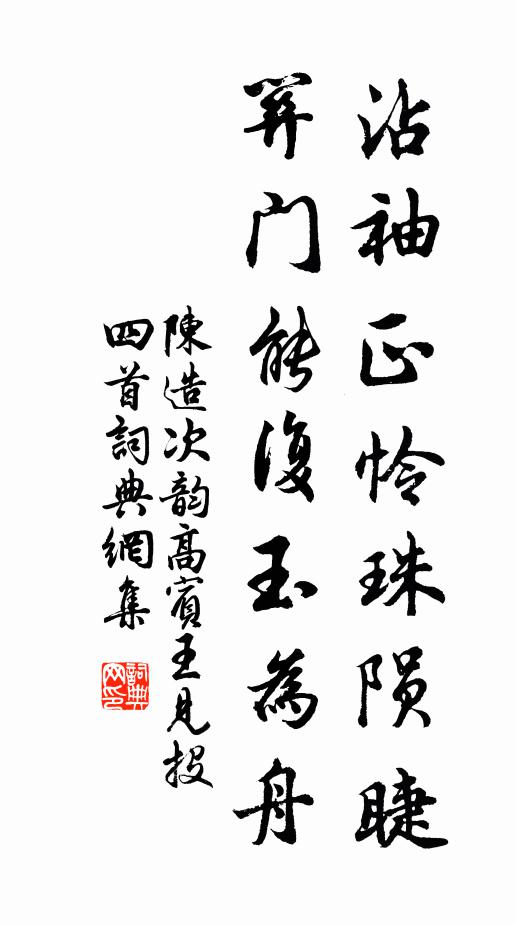 沾袖正怜珠陨睫
羿门能復玉為舟
陳造次韵高賓王见投
四首詞典網集
詞典网印